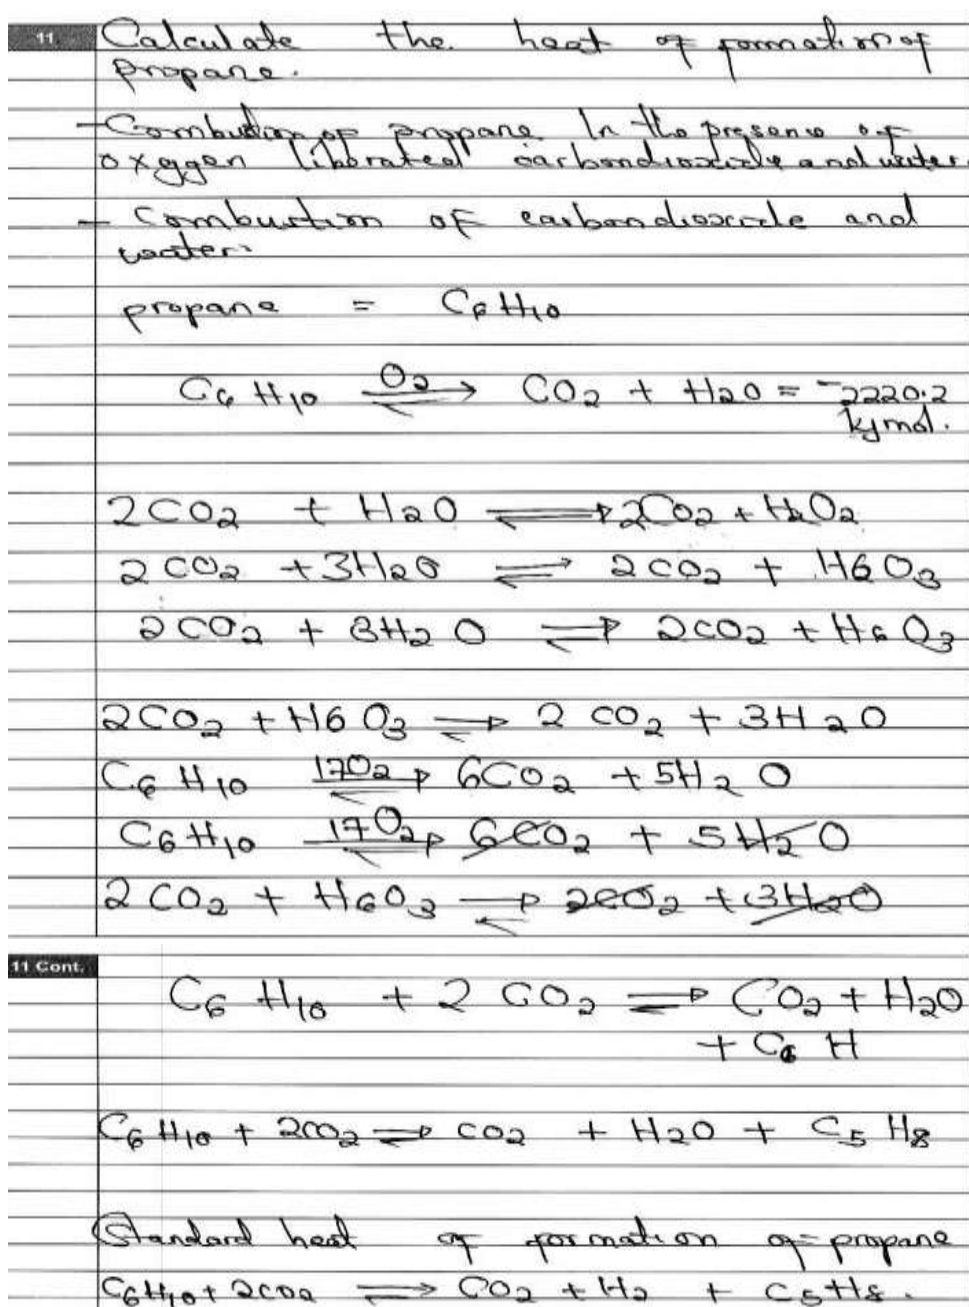 11.
Calculate the heat of formation of
propane.
- Combustion of propane In the presence of
oxeggen liberated carbondioxide and water.
- Combustion of carbondioxide and
water:
propane = C6H10
C6H10 ⇌ O2 CO2 + H2O = -2220.2
kjmol.
2CO2 + H2O ⇌ 2CO2 + H2O2
2CO2 + 3H2O ⇌ 2CO2 + H6O3
2CO2 + 3H2O ⇌ 2CO2 + H6O3
2CO2 + H6O3 ⇌ 2CO2 + 3H2O
C6H10 17O2 ⇌ 6CO2 + 5H2O
C6H10 17O2 ⇌ 6CO2 + 5H2O
2CO2 + H6O3 ⇌ 2CO2 + 3H2O
11 Cont.
C6H10 + 2CO2 ⇌ CO2 + H2O
+ C6H
C6H10 + 2CO2 ⇌ CO2 + H2O + C5H8
Standard heat of formation of propane
C6H10 + 2CO2 ⇌ CO2 + H2 + C5H8.